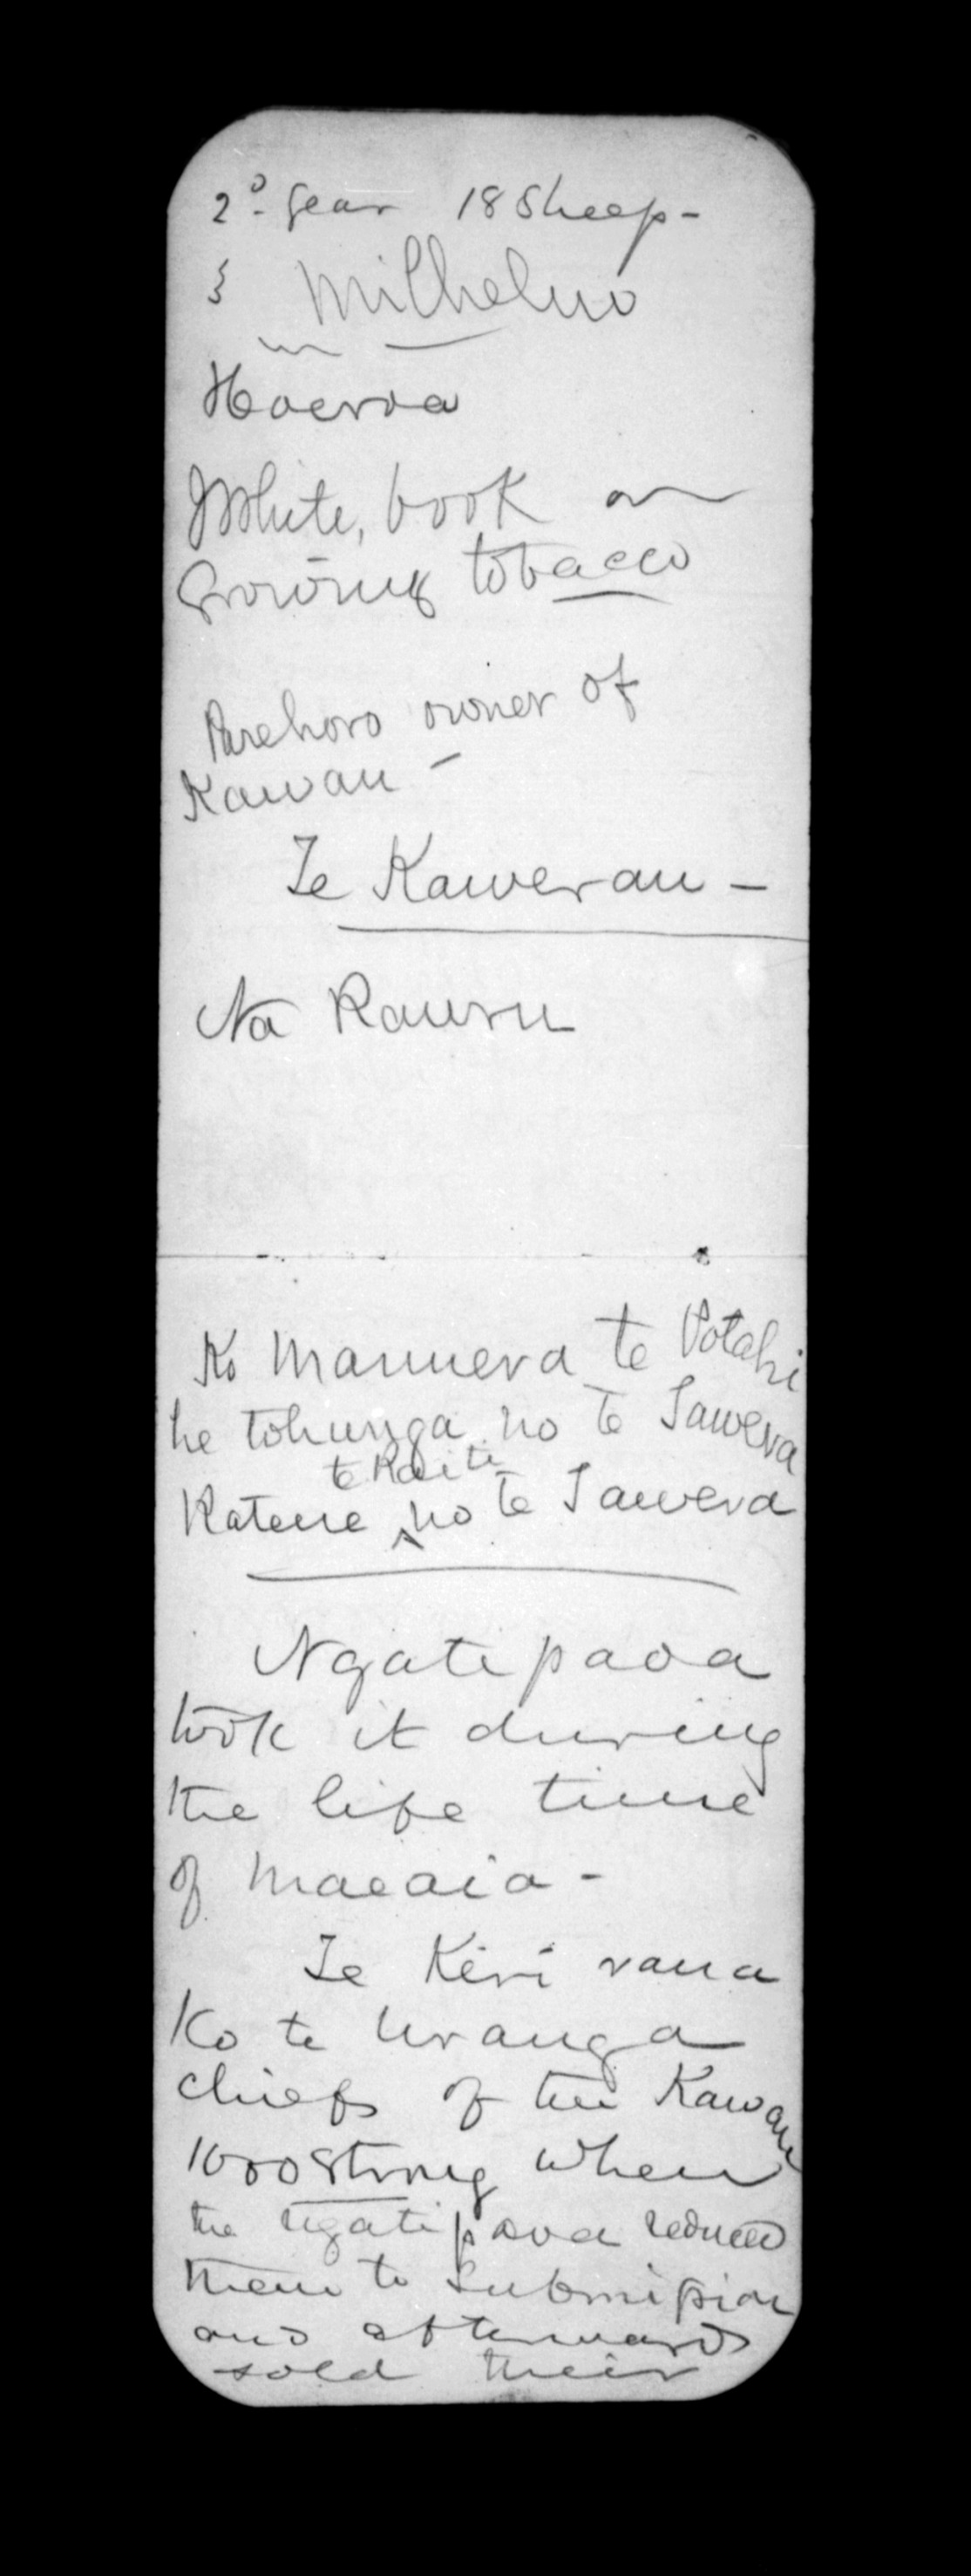 2d. Gear 18 Sheep -
Hoeroa
White, book on
Growing tobacco
Parehoro owner of
Kawau -
Te Kawerau -
Na Rauru
Ko Manuera te Potahi
he tohunga no te Tawera
te Raiti
Ratene no te Tawera
Ngatipaoa
took it during
the life time
of Maeaia -
Te Kiri raua
Ko te Uranga
chiefs of the Kawau
1000 strong when
the Ngatipaoa reduced
them to submission
and afterwards
sold their